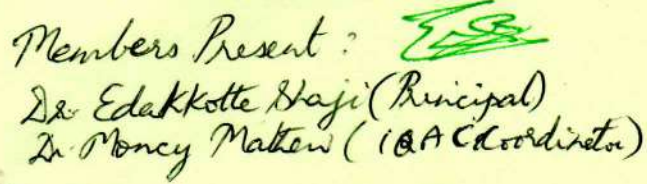 Members Present :
Dr. Edakkotte Shaji (Principal)
Dr Moncy Mathew ( IQAC Coordinator)